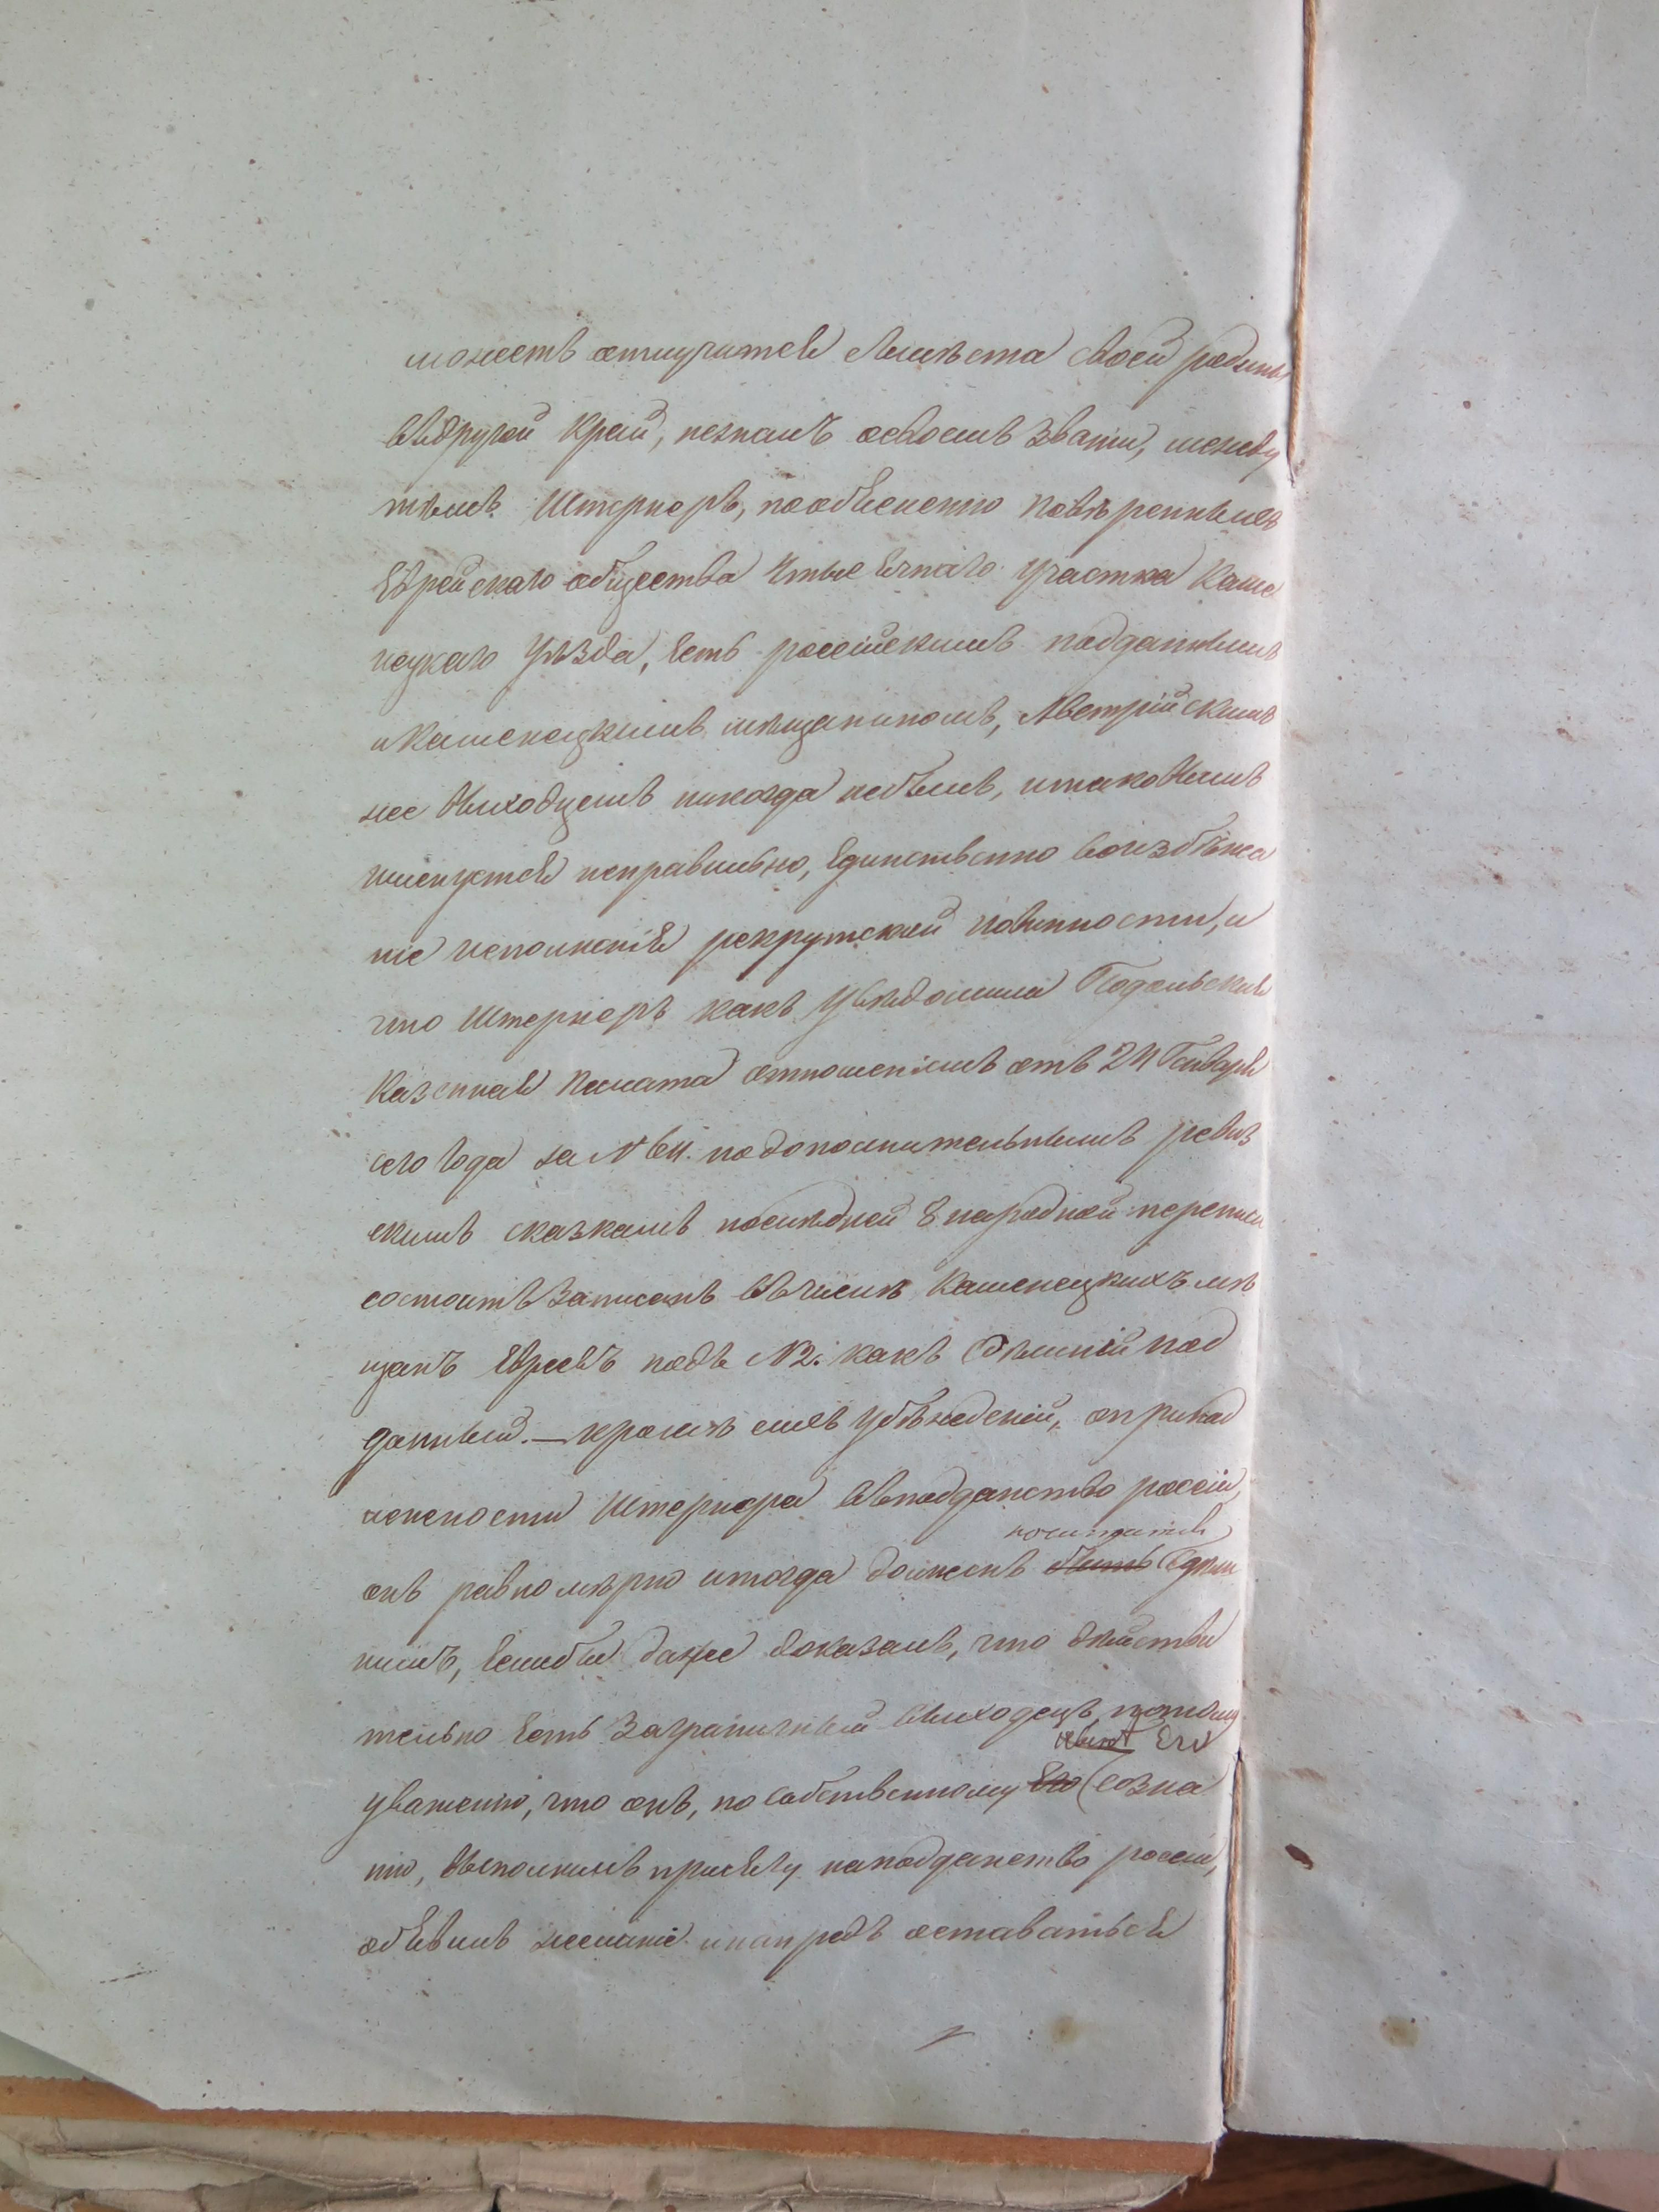 можетъ отлучится съ мѣста своей родины
въ другой край, незналъ освоемъ званіи, между
тѣмъ Штернеръ, пообъясненію повѣренныхъ
Еврейскаго общества участка Каме
нецкаго Уѣзда, есть россійскимъ подданнымъ
и Каменецкимъ мѣщаниномъ, Австрійскимъ
же выходцемъ никогда небылъ, итаковымъ
пишется неправильно, единственно воизбѣжа
ніе исполненія рекрутской повинности, и
что Штернеръ какъ увѣдомила Подольская
Казенная Палата отношеніемъ отъ 24 Генваря
сего года за № 64. подополнительнымъ ревиз
скимъ сказкамъ послѣдней 8 народной переписи
состоитъ записанъ въ числѣ Каменецкихъ мѣ
щанъ Евреевъ подъ № 2. какъ здѣшній под
данный. — кромѣ сихъ убѣжденій, оприкад
лежности Штернера въ подданство россіи,
почитатся
онъ равномѣрно итогда долженъ быть здѣш
нимъ, еслибы даже доказалъ, что дѣйстви
тельно есть Заграничный выходецъ, потому
Его
уваженію, что онъ, по собственному Его созна
нію, выполнилъ присягу на подданство россіи,
объявилъ желаніе инапредъ оставаться